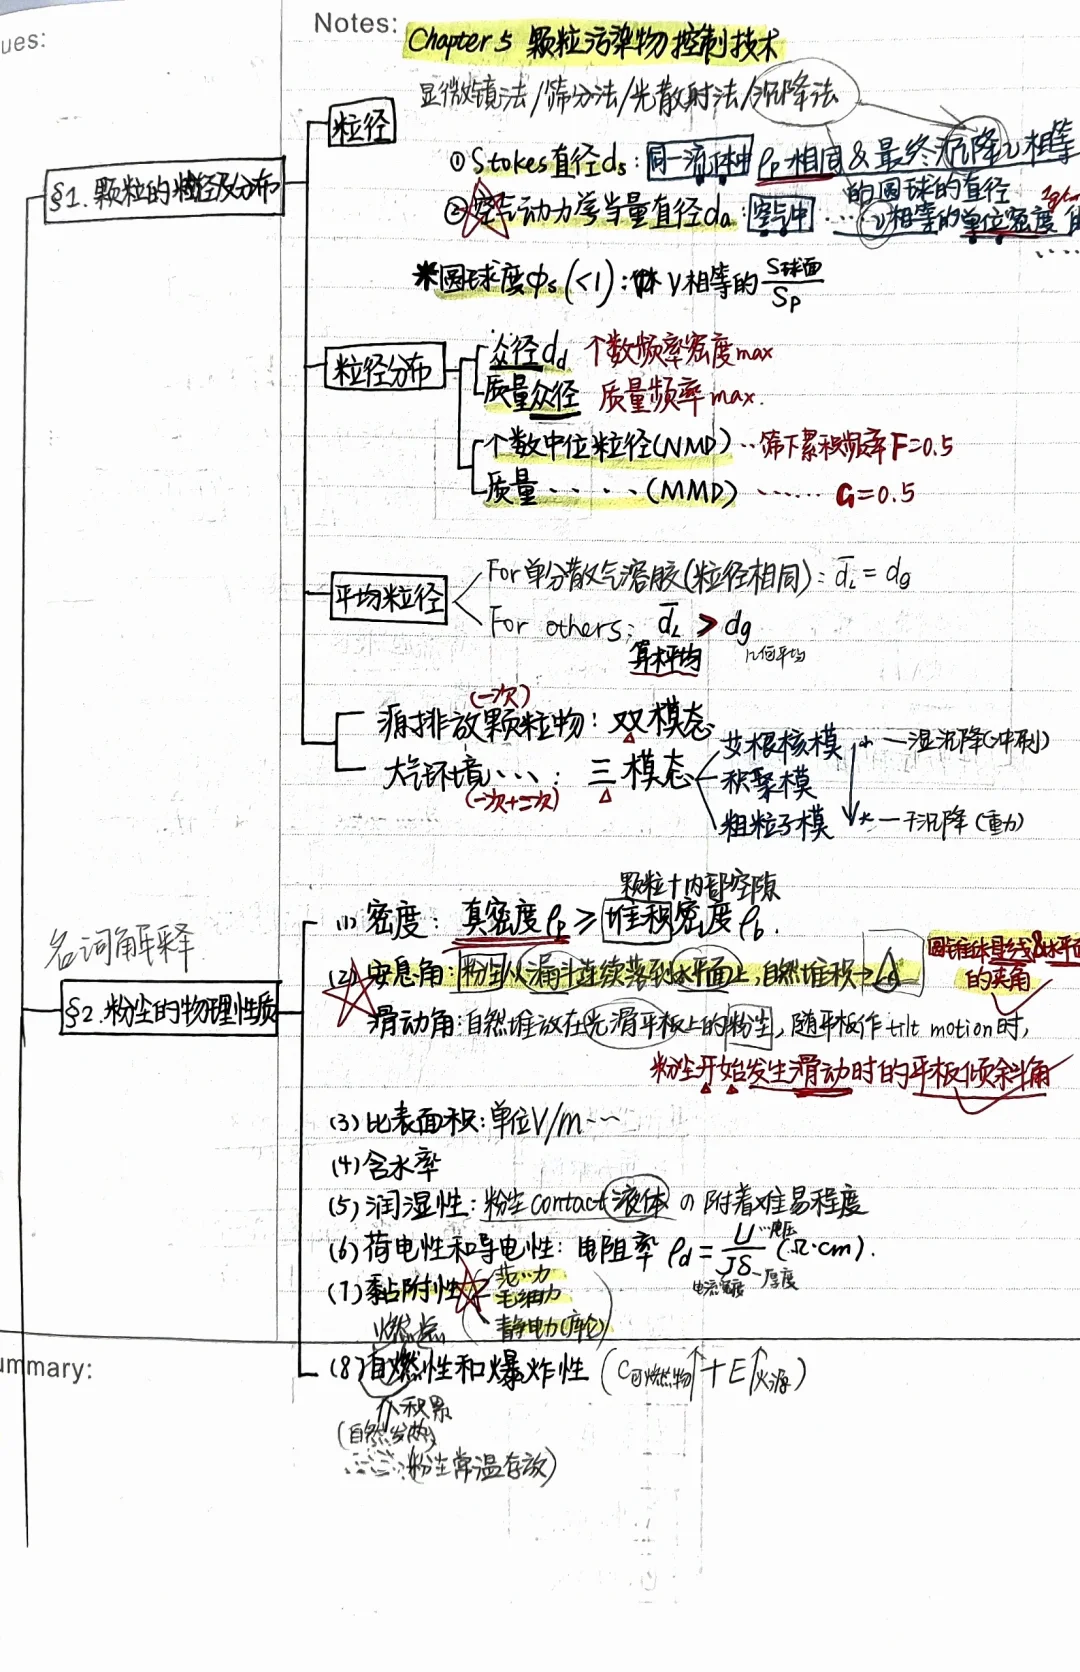 ues:
Notes:
Chapter 5 颗粒污染物控制技术
显微镜法/筛分法/光散射法/沉降法
粒径
①Stokes直径ds:同一流体中ρp相同&最终沉降υ相等
的圆球的直径
②空气动力学当量直径da:空气中……υ相等的单位密度
*圆球度φs(<1):V相等的S球面/Sp
§1.颗粒的粒径及分布
粒径分布
众径dd 个数频率密度max
质量众径 质量频率max.
个数中位粒径(NMD)…筛下累积频率F=0.5
质量·····(MMD)…… G=0.5
平均粒径
For单分散气溶胶(粒径相同):d̄L=dg
For others: d̄L > dg
算术平均 几何平均
(一次)
源排放颗粒物:双模态
大气环境····:三模态
(一次+二次)
艾根核模 小—湿沉降(冲刷)
积聚模
粗粒子模 大—干沉降(重力)
颗粒+内部空隙
(1)密度:真密度ρp≥堆积密度ρb.
名词解释
(2)安息角:粉尘从漏斗连续落到水平面上,自然堆积→
圆锥体母线&水平面
的夹角
§2.粉尘的物理性质
滑动角:自然堆放在光滑平板上的粉尘,随平板作tilt motion时,
粉尘开始发生滑动时的平板倾斜角
(3)比表面积:单位V/m…
(4)含水率
(5)润湿性:粉尘contact液体の附着难易程度
(6)荷电性和导电性:电阻率ρd=U/Jδ(Ω·cm).
电压
电流密度 厚度
(7)黏附性
范…力
毛细力
静电力(库仑)
燃点
(8)自燃性和爆炸性(C可燃物↑+E↑火源)
积累
(自然发热)
粉尘常温存放)
ummary: